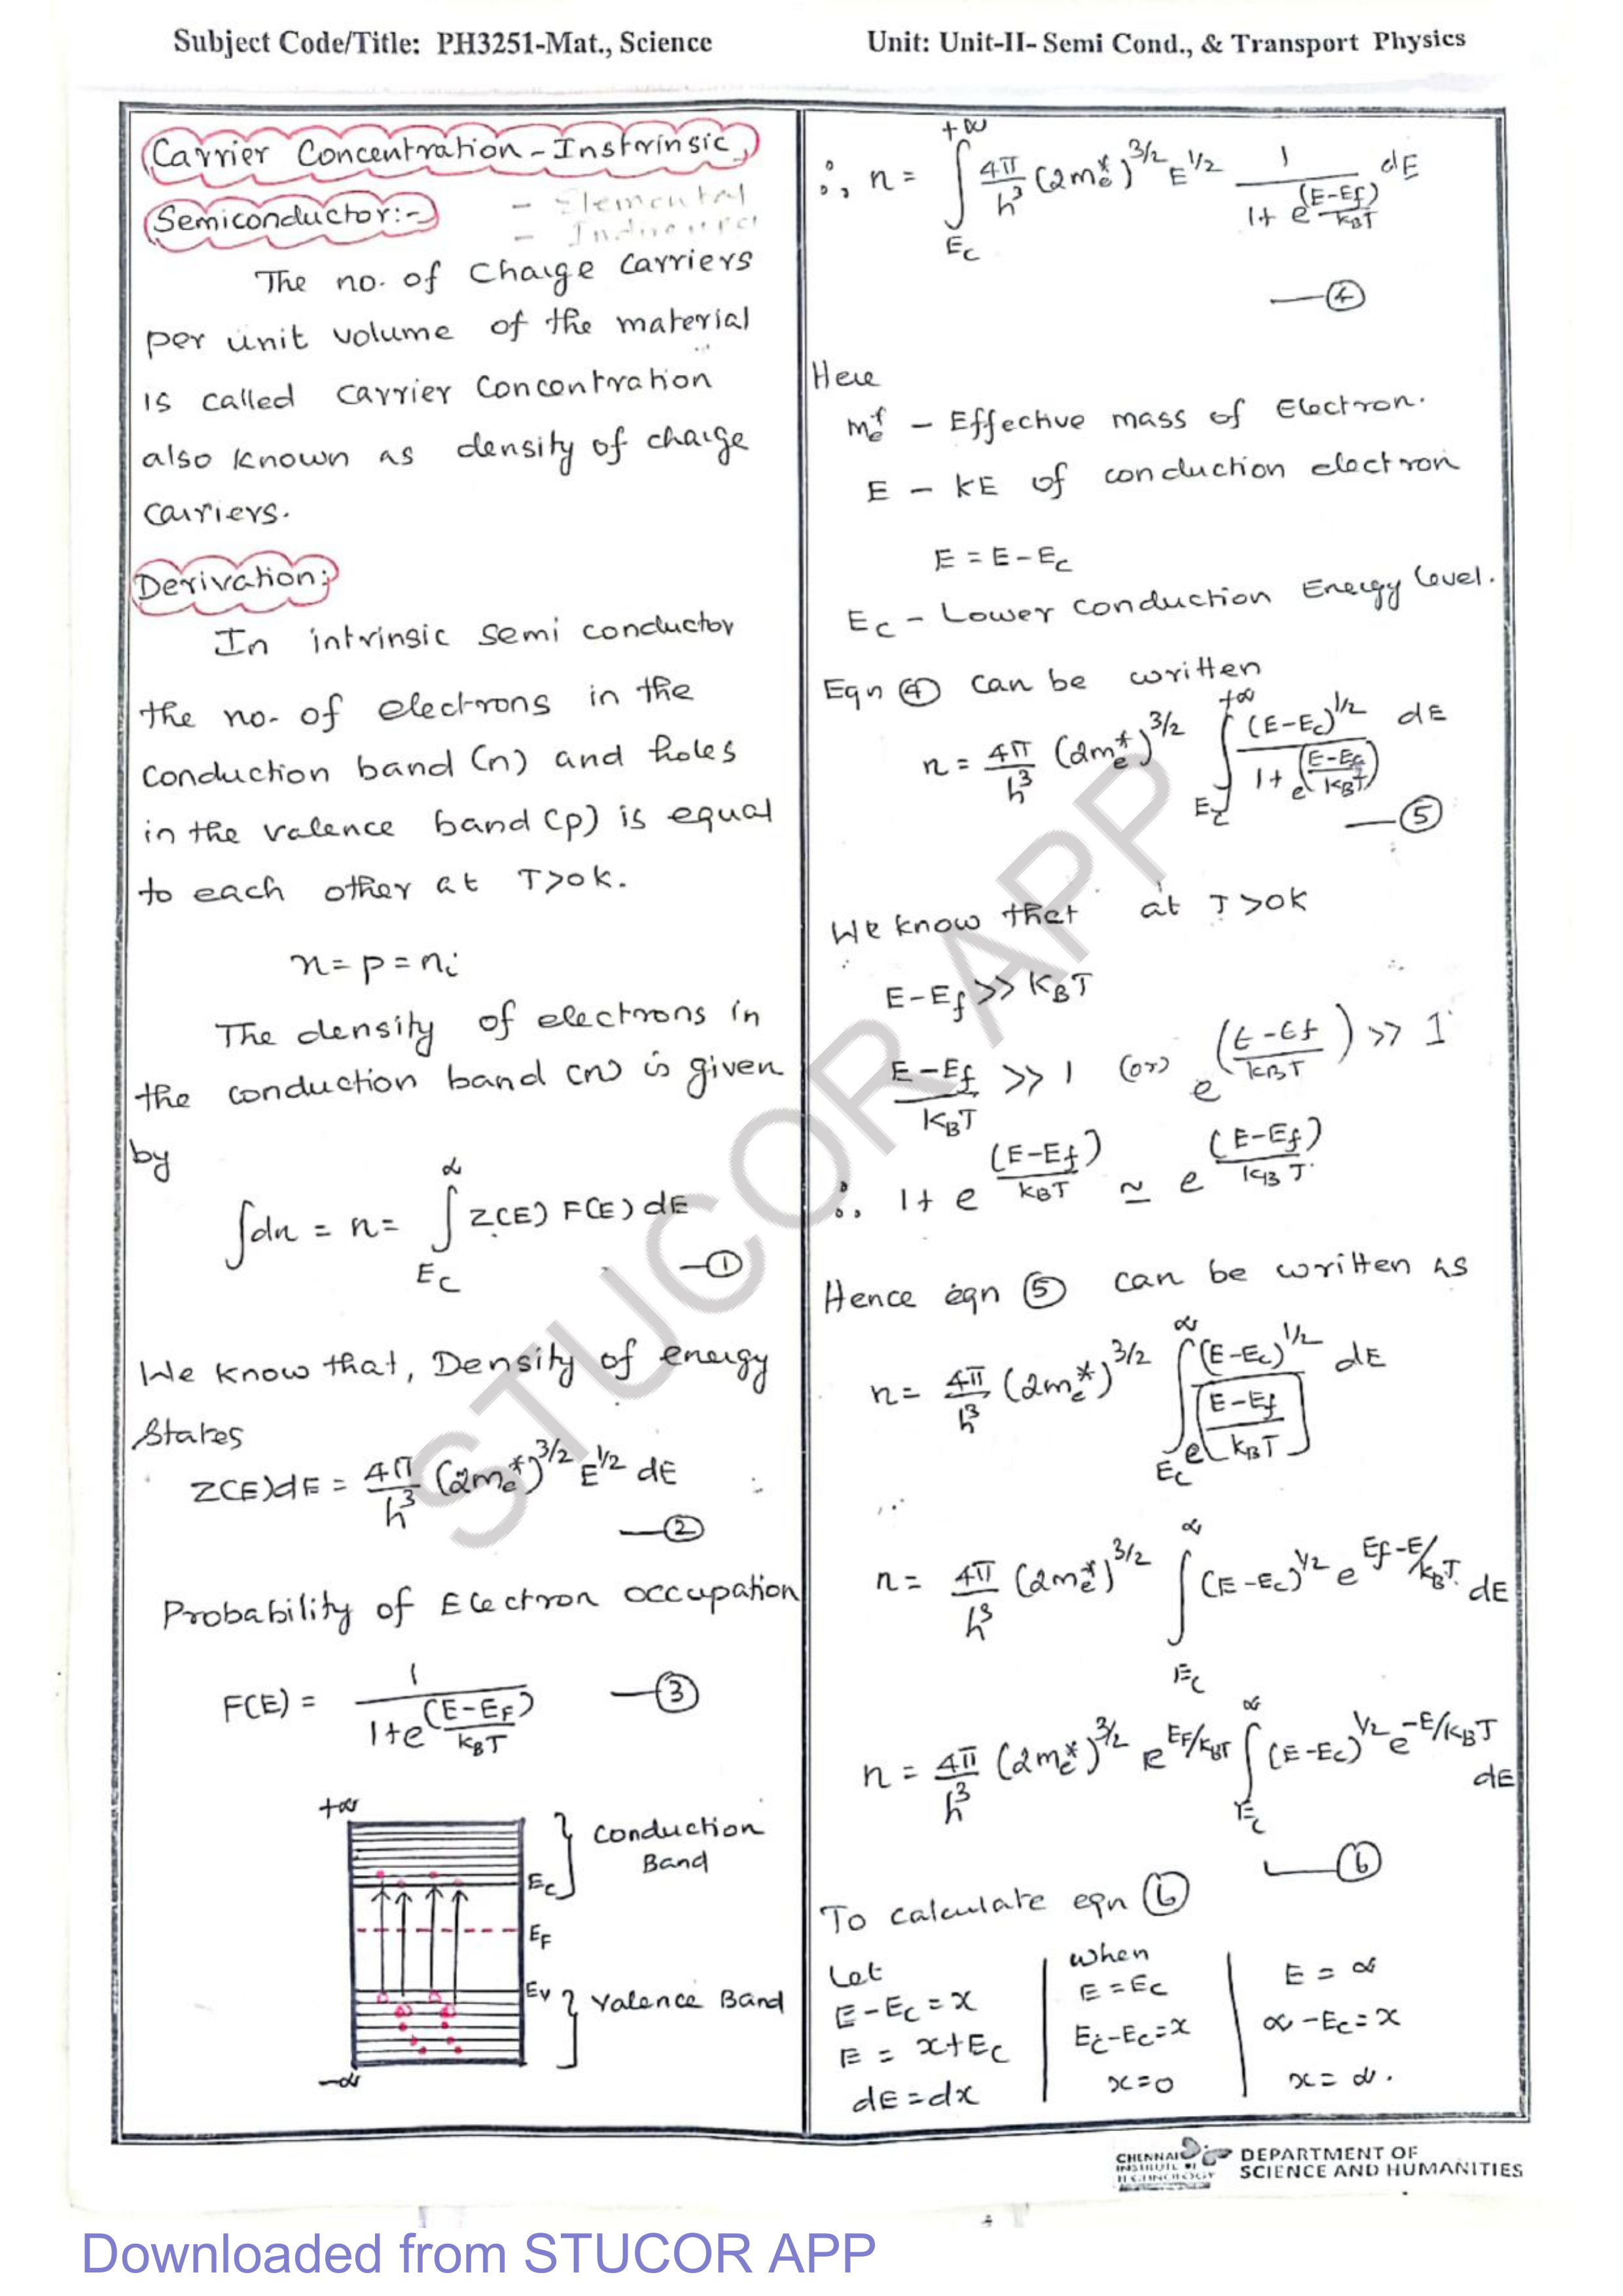 Subject Code/Title: PH3251-Mat., Science
Unit: Unit-II- Semi Cond., & Transport Physics
Carrier Concentration - Instrinsic
Semiconductor:-
- Elemental
-
The no. of Charge Carriers
per unit volume of the material
is called carrier concentration
also known as density of charge
carriers.
Derivation:
In intrinsic semi conductor
the no. of electrons in the
conduction band (n) and holes
in the valence band (p) is equal
to each other at T>0K.
n = p = nᵢ
The density of electrons in
the conduction band (n) is given
by
∫dn = n = ∫_{E_C}^{∝} Z(E) F(E) dE —①
We know that, Density of energy
States
Z(E)dE = 4π/h³ (2m_e*)^{3/2} E^{1/2} dE
—②
Probability of Electron occupation
F(E) = 1/(1+e^{(E-E_F)/k_BT}) —③
+∝
Conduction
Band
E_C
E_F
E_V
Valence Band
-∝
∴, n = ∫_{E_C}^{+∝} 4π/h³ (2m_e*)^{3/2} E^{1/2} 1/(1+e^{(E-E_f)/k_BT}) dE
—④
Here
m_e* - Effective mass of Electron.
E - KE of conduction electron
E = E-E_C
E_C - Lower conduction Energy level.
Eqn ④ can be written
n = 4π/h³ (2m_e*)^{3/2} ∫_{E_C}^{+∝} (E-E_C)^{1/2}/(1+e^{(E-E_f)/k_BT}) dE
—⑤
We know that at T>0K
E-E_f >> K_BT
(E-E_f)/K_BT >> 1 (or) e^{((E-E_f)/k_BT)} >> 1
∴ 1+e^{(E-E_f)/k_BT} ≃ e^{(E-E_f)/k_BT}
Hence eqn ⑤ can be written as
n = 4π/h³ (2m_e*)^{3/2} ∫_{E_C}^{∝} (E-E_c)^{1/2}/e^{[(E-E_f)/k_BT]} dE
n = 4π/h³ (2m_e*)^{3/2} ∫_{E_C}^{∝} (E-E_c)^{1/2} e^{E_f-E/k_BT} dE
n = 4π/h³ (2m_e*)^{3/2} e^{E_F/k_BT} ∫_{E_C}^{∝} (E-E_c)^{1/2} e^{-E/k_BT} dE
—⑥
To calculate eqn ⑥
Let
E-E_C = x
E = x+E_C
dE = dx
when
E = E_C
E_C-E_C = x
x = 0
E = ∝
∝-E_C = x
x = ∝.
CHENNAI
INSTITUTE OF
TECHNOLOGY
DEPARTMENT OF
SCIENCE AND HUMANITIES
STUCOR APP
Downloaded from STUCOR APP